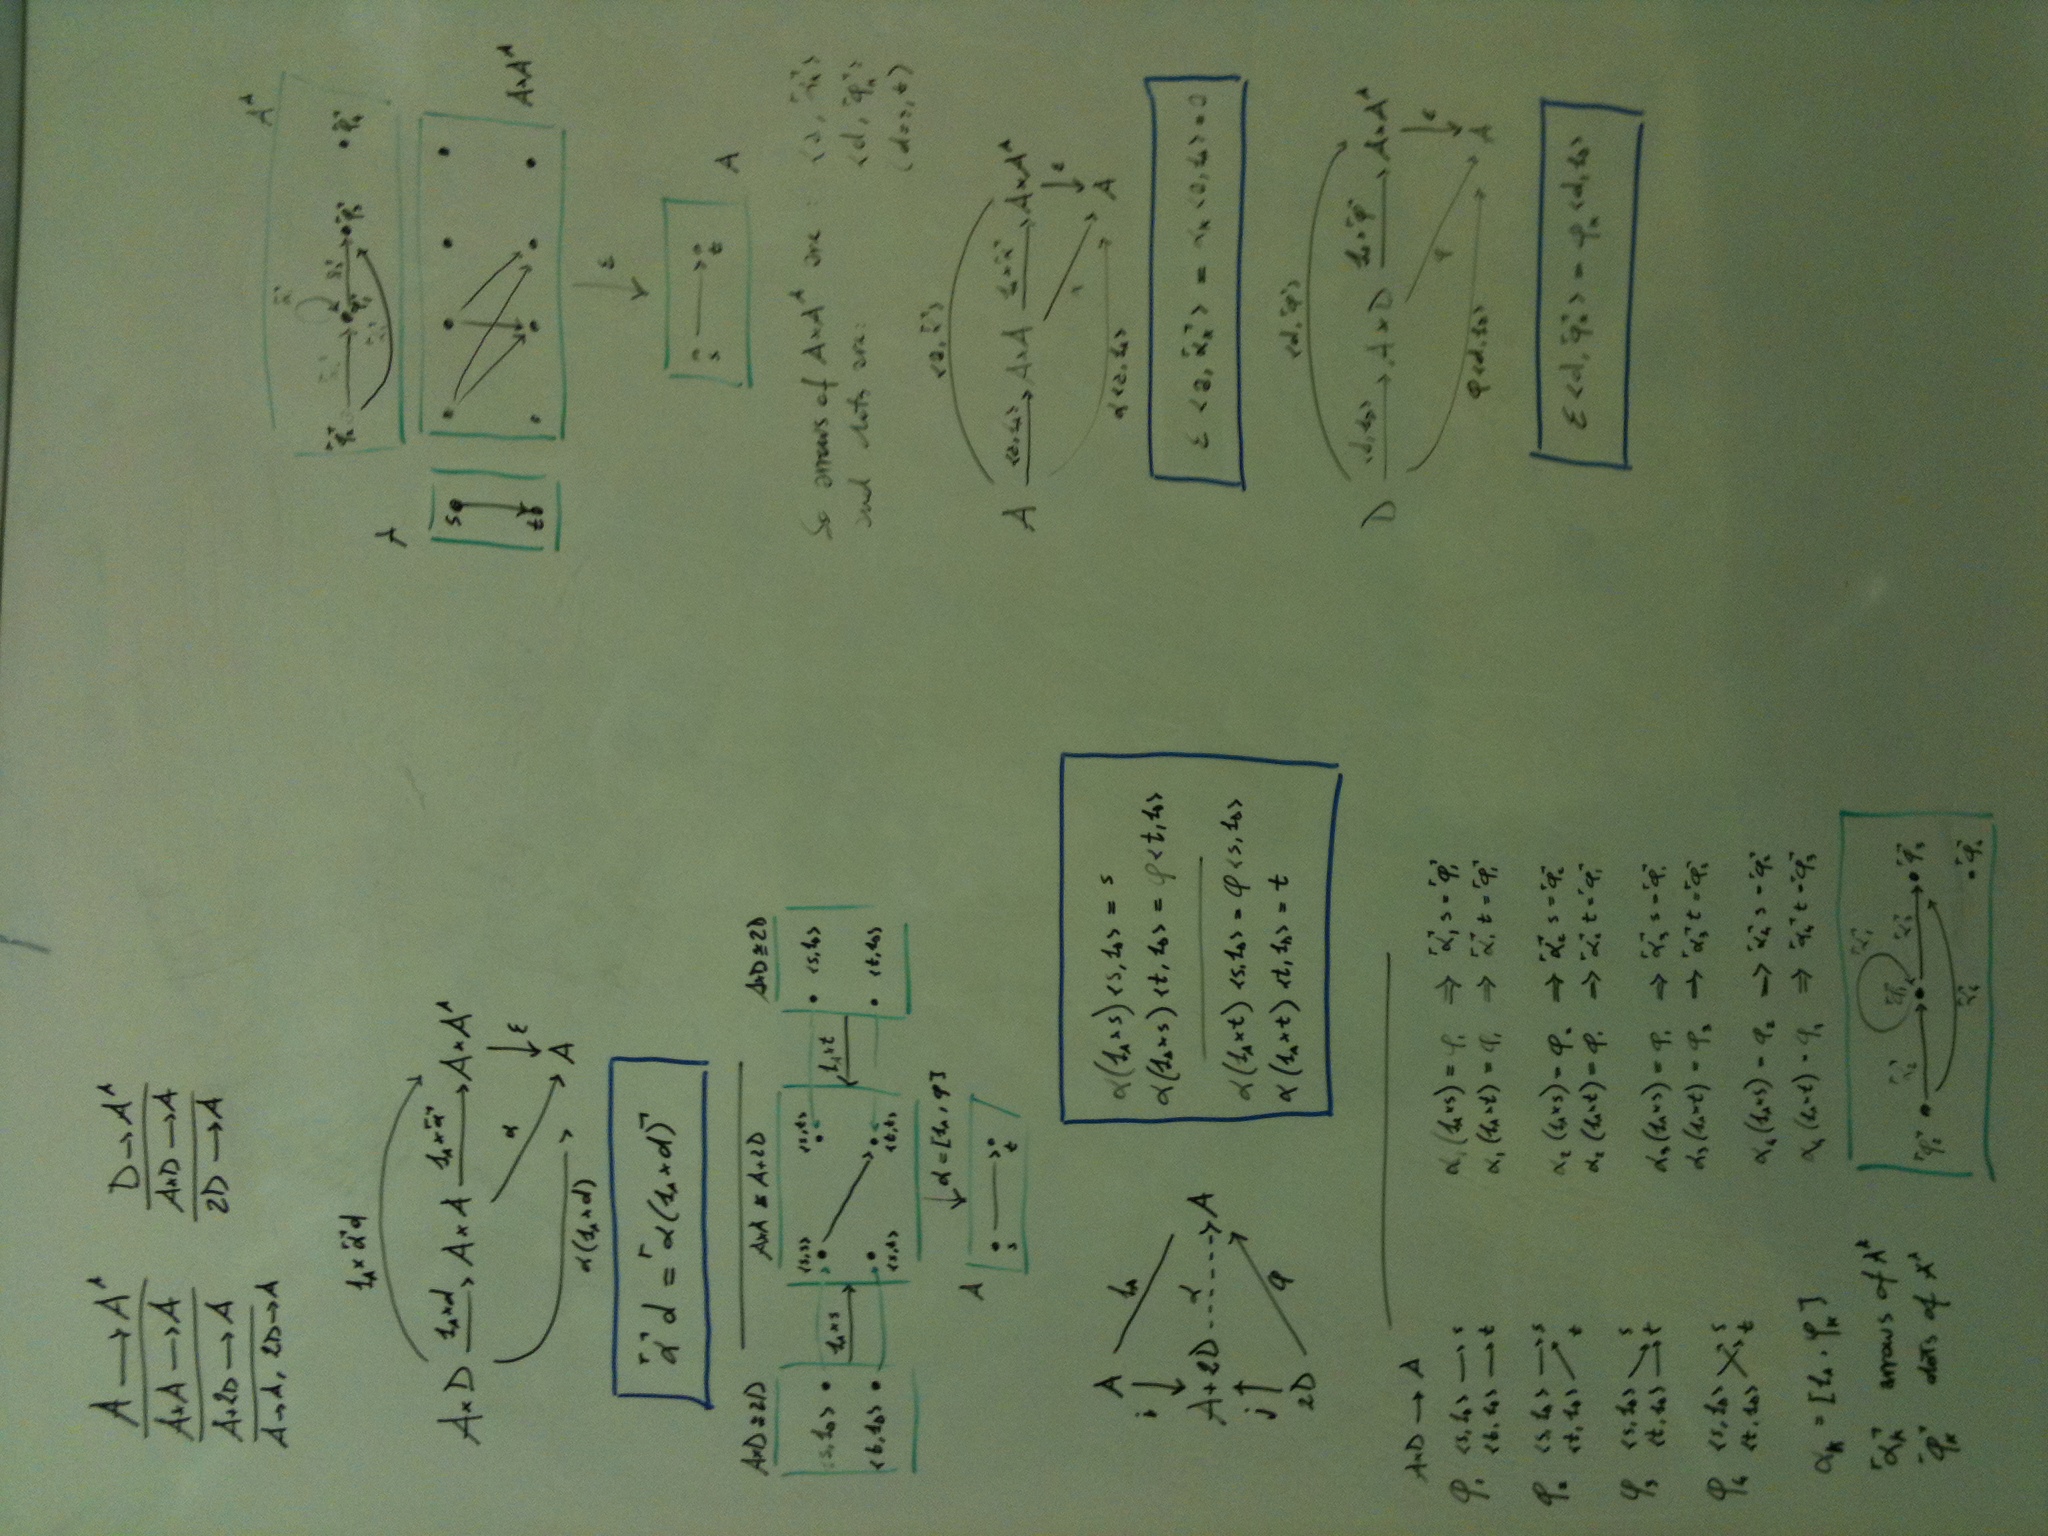 A → A^A
A×A → A
A+2D → A
A→A, 2D→A
D → A^A
A×D → A
2D → A
1_A × ⌜α⌝d
A×D 1_A×d → A×A 1_A×⌜α⌝ → A×A^A
α ε
A
α(1_A×d)
⌜α⌝ d = ⌜α(1_A×d)⌝
A×D ≅ 2D A×A ≅ A+2D A×D ≅ 2D
<s,s> <s,t>
<s,1_D> <s,1_D>
1_A×s 1_A×t
<t,1_D> <t,1_D>
<s,t> <t,t>
α = [1_A, φ]
A
s → t
A
i 1_A
A+2D α A
j φ
2D
α(1_A×s) <s,1_D> = s
α(1_A×s) <t,1_D> = φ<t,1_D>
α(1_A×t) <s,1_D> = φ<s,1_D>
α(1_A×t) <t,1_D> = t
A×D → A
φ₁ <s,1_D> → s
<t,1_D> → t
φ₂ <s,1_D> → s
<t,1_D> t
φ₃ <s,1_D> s
<t,1_D> → t
φ₄ <s,1_D> s
<t,1_D> t
α_k = [1_A, φ_k]
⌜α_k⌝ arrows of A^A
⌜φ_k⌝ dots of A^A
α₁(1_A×s) = φ₁ ⇒ ⌜α₁⌝ s = ⌜φ₁⌝
α₁(1_A×t) = φ₁ ⇒ ⌜α₁⌝ t = ⌜φ₁⌝
α₂(1_A×s) = φ₂ ⇒ ⌜α₂⌝ s = ⌜φ₂⌝
α₂(1_A×t) = φ₁ ⇒ ⌜α₂⌝ t = ⌜φ₁⌝
α₃(1_A×s) = φ₁ ⇒ ⌜α₃⌝ s = ⌜φ₁⌝
α₃(1_A×t) = φ₃ ⇒ ⌜α₃⌝ t =
α₄(1_A×s) = φ₂ ⇒ ⌜α₄⌝ s = ⌜φ₂⌝
α₄(1_A×t) = φ₃ ⇒ ⌜α₄⌝ t = ⌜φ₃⌝
⌜α₁⌝
⌜α₂⌝ ⌜φ₁⌝ ⌜α₃⌝
⌜φ₂⌝ ⌜φ₃⌝
⌜α₄⌝ ⌜φ₄⌝
A^A
⌜φ₂⌝ ⌜φ₁⌝ ⌜φ₃⌝ ⌜φ₄⌝
A
s
t
A×A^A
ε
s → t
A
So arrows of A×A^A are: <a, ⌜α_k⌝>
and dots are: <d, ⌜φ_k⌝>
(d=s,t)
<a, ⌜α⌝>
A <a,1_A> → A×A 1_A×⌜α⌝ → A×A^A
ε
A
α<a,1_A>
ε <a, ⌜α_k⌝> = α_k <a,1_A> = a
<d, ⌜φ⌝>
D <d,1_D> → A×D 1_A×⌜φ⌝ → A×A^A
φ ε
A
φ<d,1_D>
ε <d, ⌜φ_k⌝> = φ_k <d,1_D>